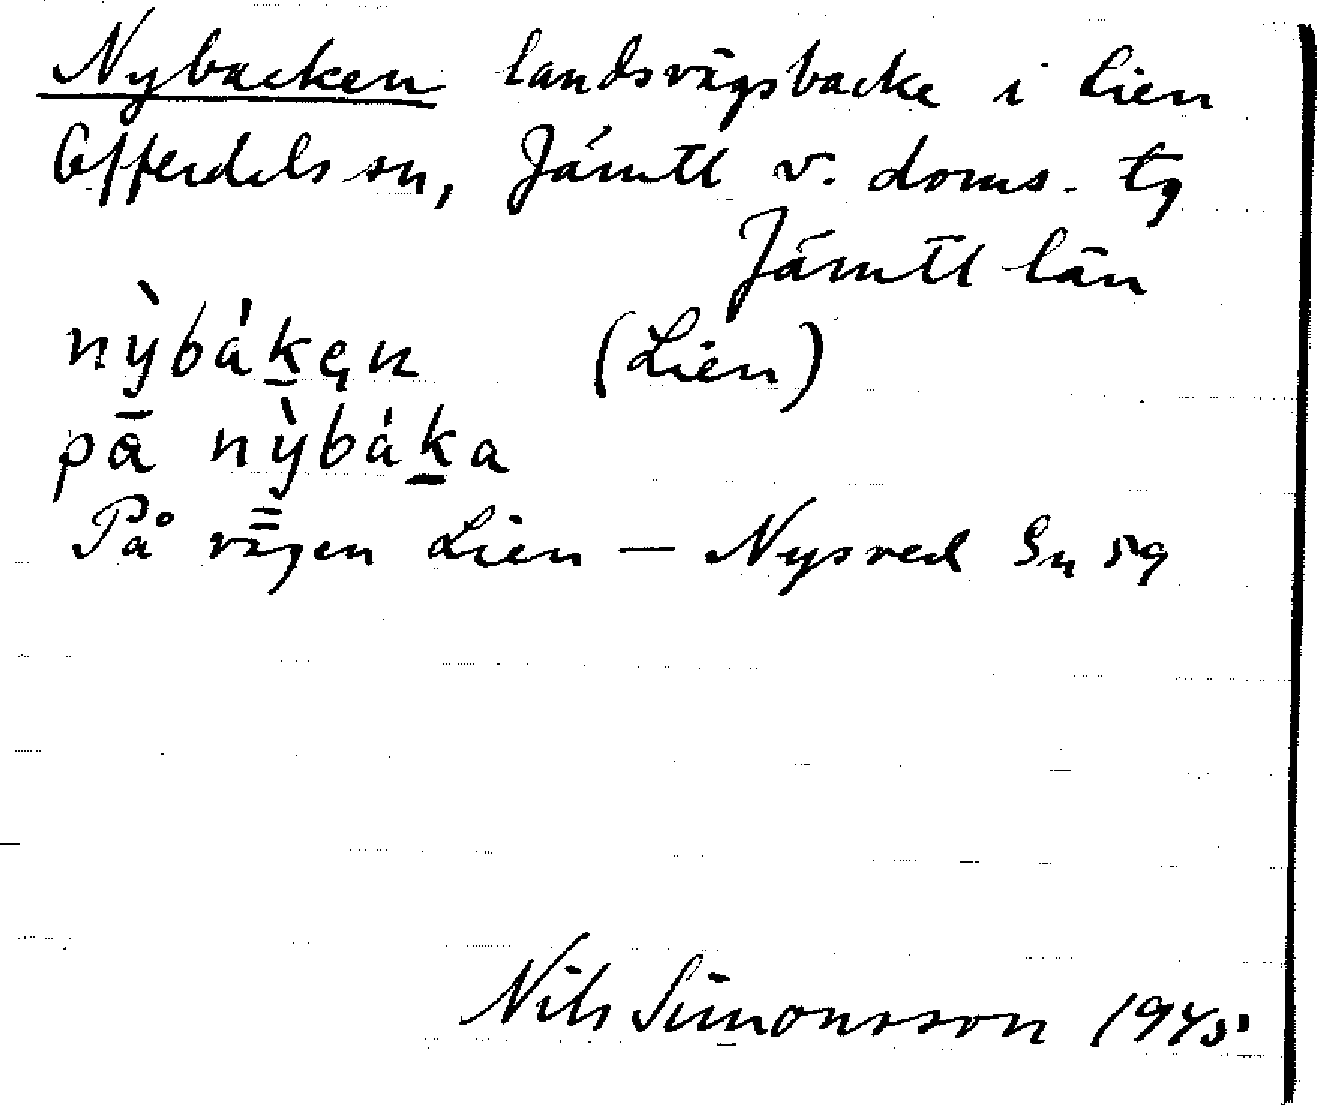 Nybacken landsvägsbacke i Lien
Offerdals sn, Jämtl v. doms. tg
Jämtl län
nỳbák̲ęn (Lien)
pā nỳbák̲a
På vägen Lien — Nysved Sn 59
Nils Simonsson 1945